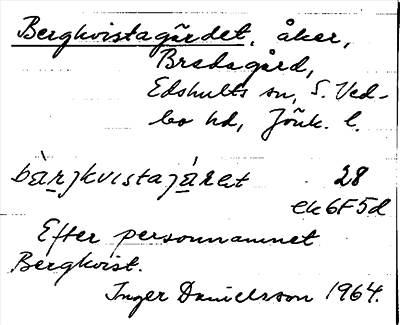 Bergkvistagärdet, åker,
Bredagård,
Edshults sn, S. Ved-
bo hd, Jönk. l.
28
ek 6F5d
Efter personnamnet
Bergkvist.
Inger Danielsson 1964.